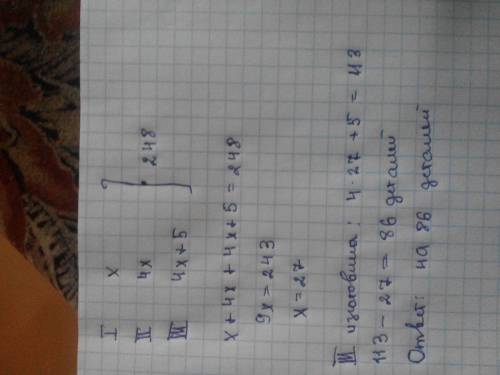 I x
II 4x } 248
III 4x+5
x+4x+4x+5=248
9x=243
x=27
III изготовила: 4·27+5=113
113-27=86 деталей
Ответ: на 86 деталей